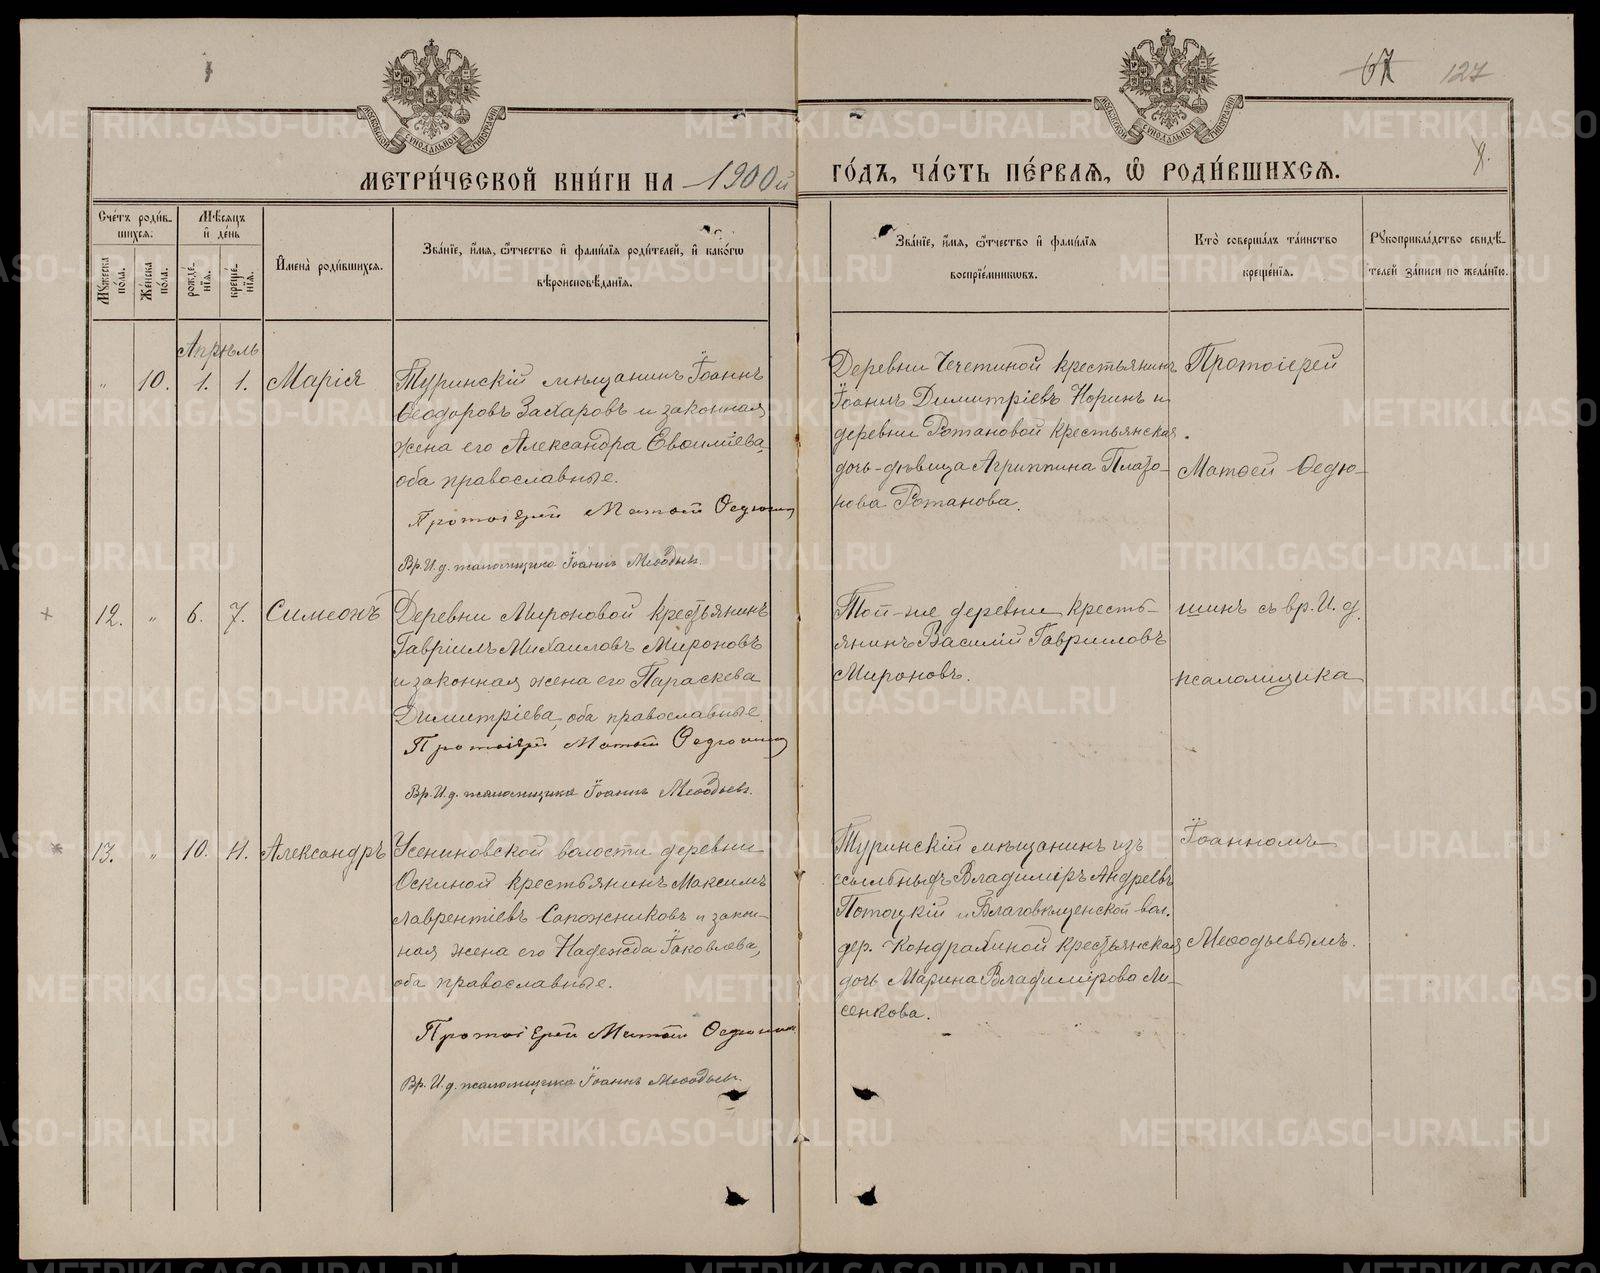 67 127
МЕТРИ́ЧЕСКОЙ КНИ́ГИ НА 1900й ГО́ДЪ, ЧА́СТЬ ПЕ́РВАѦ, Ѽ РОДИ́ВШИХСѦ.
Сче́тъ роди́в-
шихсѧ:
Мѣ́сѧцъ
и҆ де́нь
Мꙋ́жеска
по́ла.
Же́нска
по́ла.
рожде́-
нїѧ.
креще́-
нїѧ.
И҆мена̀ роди́вшихсѧ.
Зва́нїе, и҆́мѧ, ѻ҆́тчество и҆ фами́лїѧ роди́телей, и҆ како́гѡ
вѣроисповѣ́данїѧ.
Зва́нїе, и҆́мѧ, ѻ҆́тчество и҆ фами́лїѧ
воспрїе́мникѡвъ.
Кто̀ соверша́лъ та́инство
креще́нїѧ.
Рꙋкоприкла́дство свидѣ́-
телей за́писи по жела́нїю.
Апрѣль
" 10. 1. 1. Марія
Туринскій мѣщанинъ Іоаннъ
Ѳеодоровъ Захаровъ и законная
жена его Александра Евѳиміева,
оба православные.
Протоіерей Матѳій Ѳедюшин
Вр. И. д. псаломщика Іоаннъ Меѳодьевъ.
Деревни Чечетиной крестьянинъ
Іоаннъ Димитріевъ Норинъ и
деревни Ротановой крестьянская
дочь-дѣвица Агриппина Плато-
нова Ротанова.
Протоіерей
Матѳей Ѳедю-
12. " 6. 7. Симеонъ
Деревни Мироновой крестьянинъ
Гавріилъ Михаиловъ Мироновъ
и законная жена его Параскева
Димитріева, оба православные.
Протоіерей Матѳій Ѳедюшин
Вр. И. д. псаломщика Іоаннъ Меѳодьевъ.
Той-же деревни кресть-
янинъ Василій Гавриловъ
Мироновъ.
шинъ съ вр. И. д.
псаломщика
13. " 10. 11. Александръ
Усениновской волости деревни
Оскиной крестьянинъ Максимъ
Лаврентіевъ Сапожниковъ и закон-
ная жена его Надежда Іаковлева,
оба православные.
Протоіерей Матѳій Ѳедюшин
Вр. И. д. псаломщика Іоаннъ Меѳодьевъ.
Туринскій мѣщанинъ изъ
ссыльныхъ Владиміръ Андреевъ
Потоцкій и Благовѣщенской вол.
дер. Кондрахиной крестьянская
дочь Марина Владимірова Ли-
сенкова.
Іоанномъ
Меѳодьевымъ.